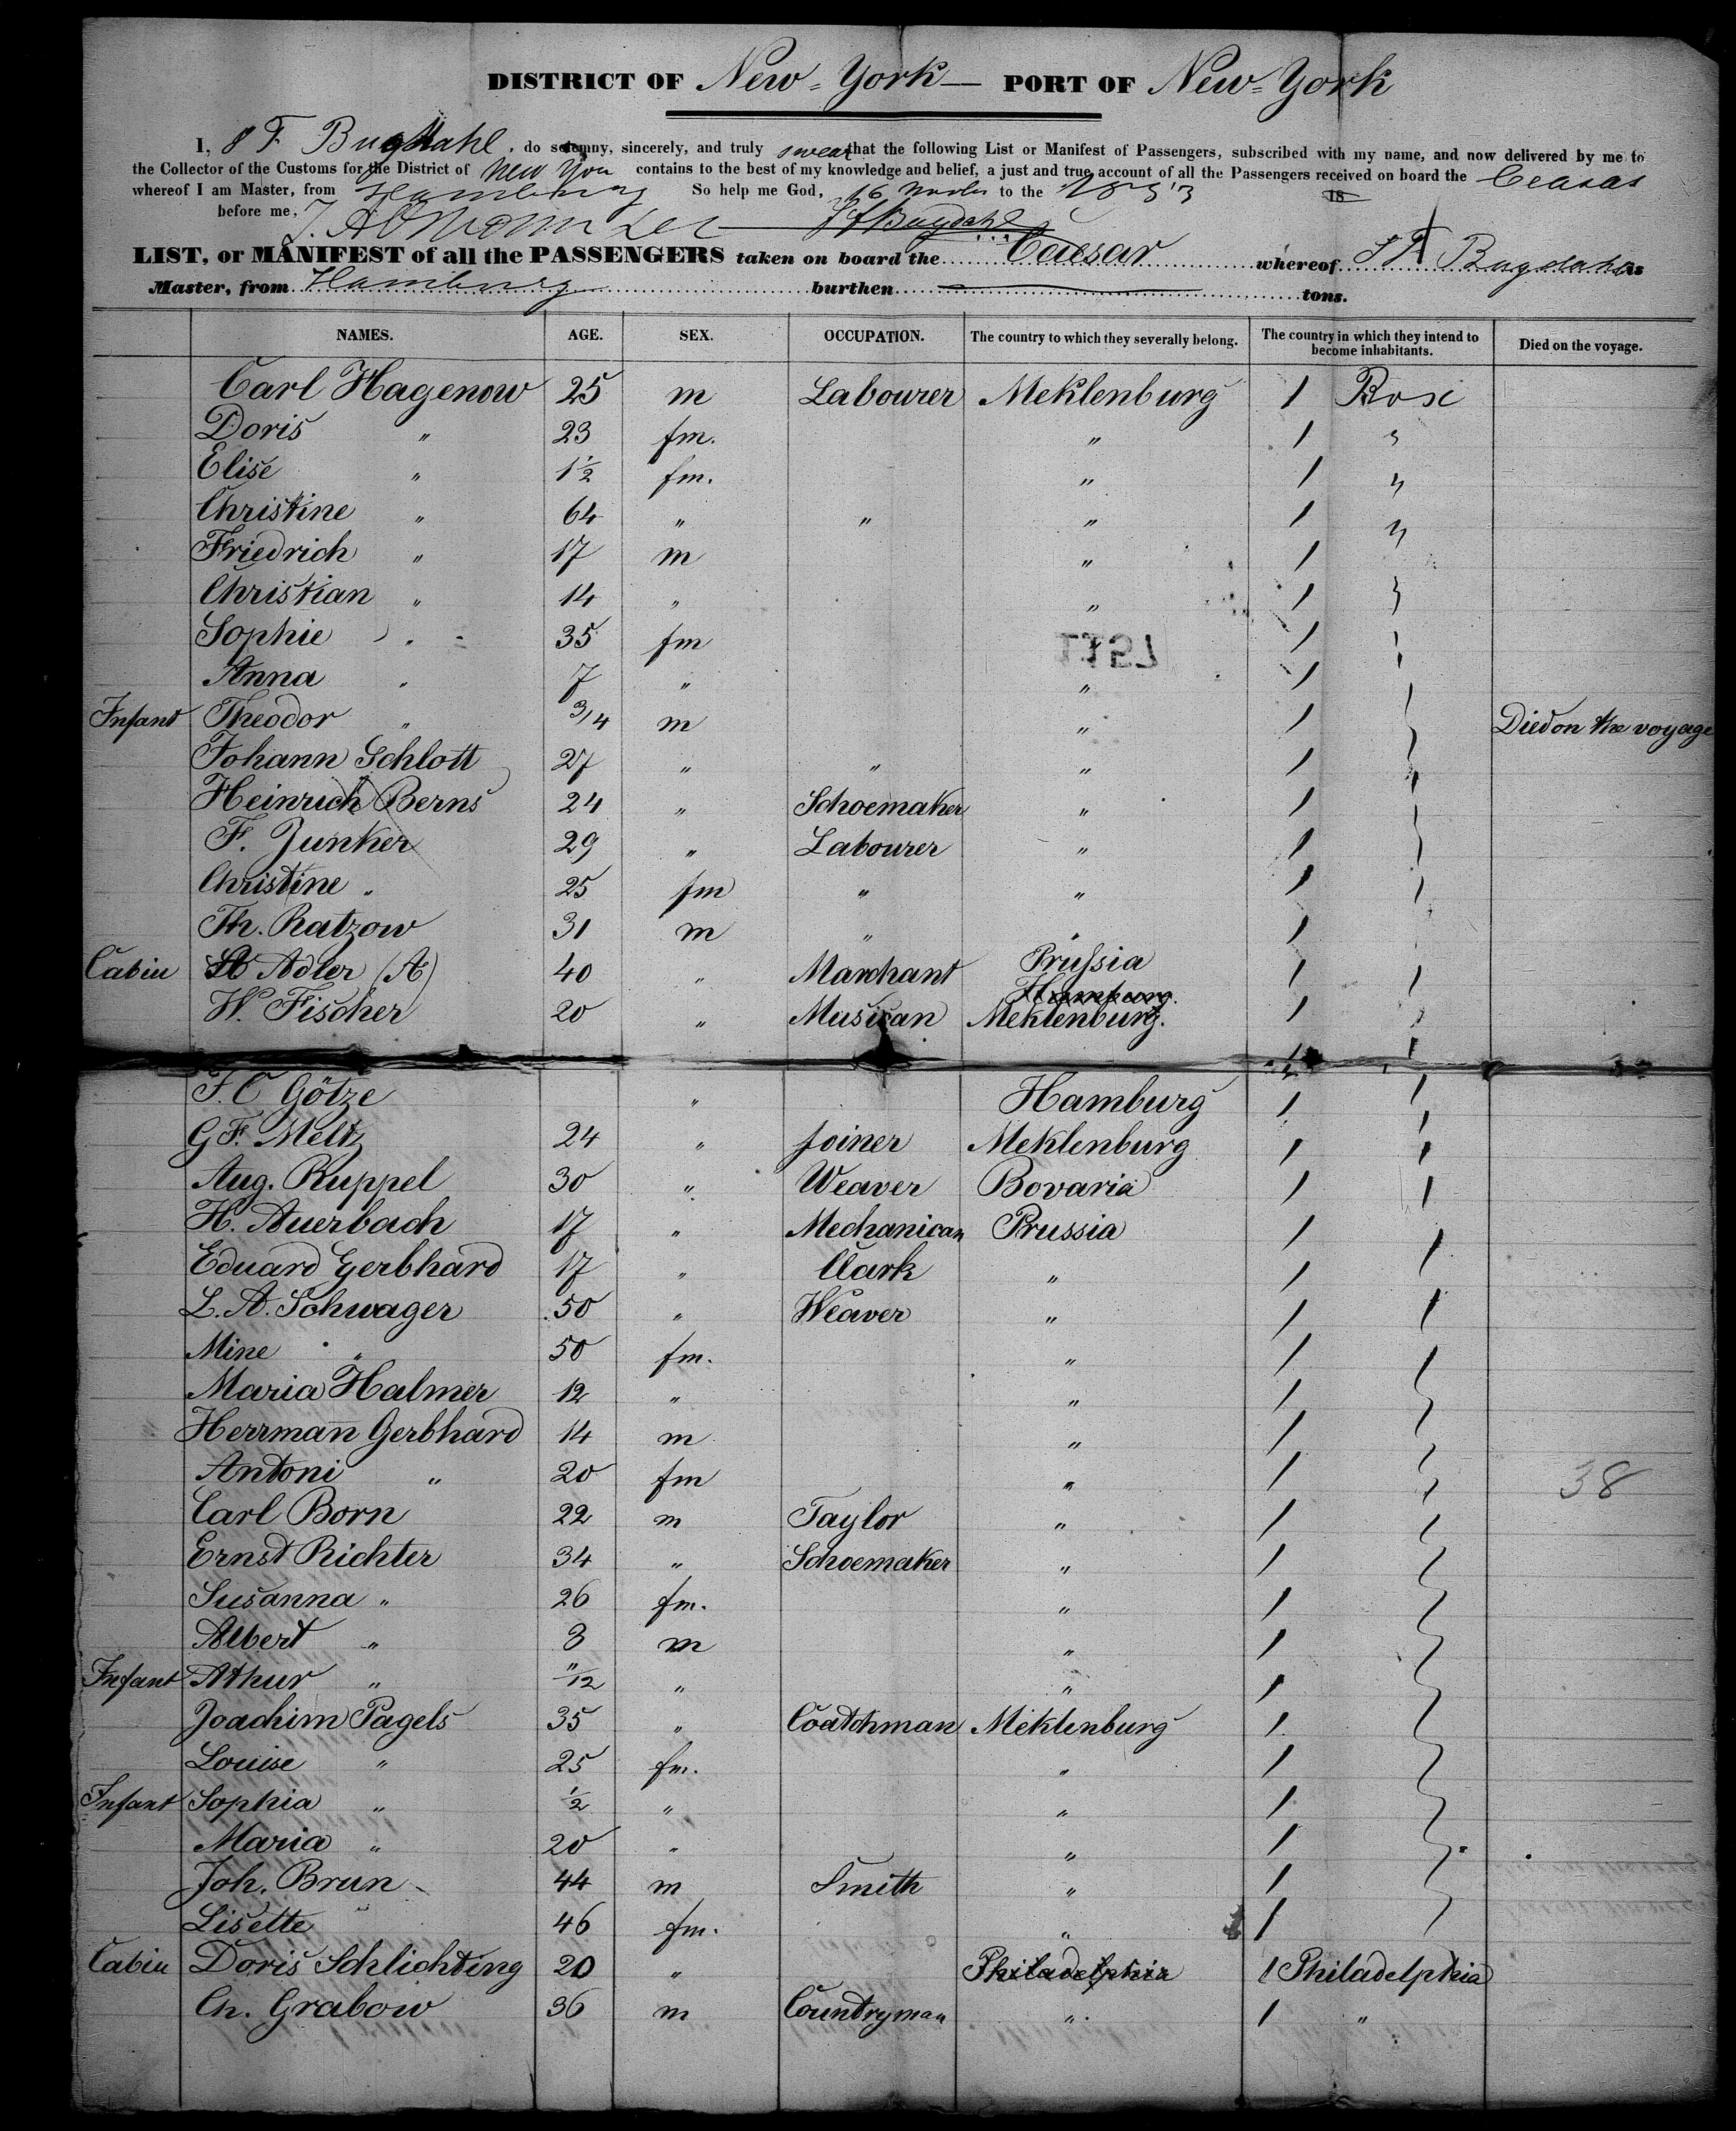 DISTRICT OF New-York — PORT OF New-York
I, F. Bugdahl, do solemny, sincerely, and truly swear that the following List or Manifest of Passengers, subscribed with my name, and now delivered by me to
the Collector of the Customs for the District of New York contains to the best of my knowledge and belief, a just and true account of all the Passengers received on board the Ceasar
whereof I am Master, from Hamburg So help me God, 16 to the 1853 18
before me, Bugdahl
LIST, or MANIFEST of all the PASSENGERS taken on board the Caesar whereof Bugdahl is
Master, from Hamburg burthen tons.
NAMES. AGE. SEX. OCCUPATION. The country to which they severally belong. The country in which they intend to become inhabitants. Died on the voyage.
Carl Hagenow 25 m Labourer Meklenburg 1
Doris " 23 fm. " 1 "
Elise " 1½ fm. " 1 "
Christine " 64 " " " 1 "
Friedrich " 17 m " 1
Christian " 14 " " 1
Sophie " 35 fm 1
1157
Anna " 7 " " 1
Infant Theodor " 3/4 m " 1 Died on the voyage
Johann Schlott 27 " " " 1
Heinrich Berns 24 " Schoemaker " 1
F. Junker 29 " Labourer " 1
Christine " 25 fm " " 1
Th. Ratzow 31 m " " 1
Cabin Adler (A) 40 " Marchant Prussia 1
Hamburg.
W. Fischer 20 " Musican Meklenburg. 1
F. C Götze " Hamburg 1
G F. Meltz 24 " Joiner Meklenburg 1
Aug. Ruppel 30 " Weaver Bovaria 1
H. Auerbach 17 " Mechanican Prussia 1
Eduard Gerbhard 17 " Clark " 1
L. A. Schwager 50 " Weaver " 1
Mine " 50 fm. " 1
Maria Halmer 12 " " 1
Herrmann Gerbhard 14 m " 1
Antoni " 20 fm " 1 38
Carl Born 22 m Taylor " 1
Ernst Richter 34 " Schoemaker " 1
Susanna " 26 fm. " 1
Albert " 3 m " 1
Infant Athur " 11/12 " " 1
Joachim Pagels 35 " Coatchman Meklenburg 1
Louise " 25 fm. " 1
Infant Sophia " ½ " " 1
Maria " 20 " " 1
Joh. Brun 44 m Smith " 1
Lisette " 46 fm. " 1
Cabin Doris Schlichting 20 " Philadelphia 1 Philadelphia
Ch. Grabow 36 m Countryman " 1 "